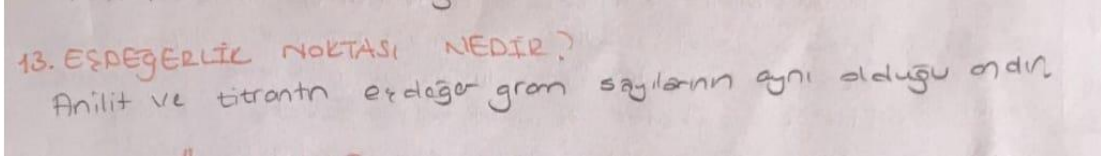 13. EŞDEĞERLİK NOKTASI NEDİR?
Anilit ve titrantn eşdeğer gram sayılarının aynı olduğu andır